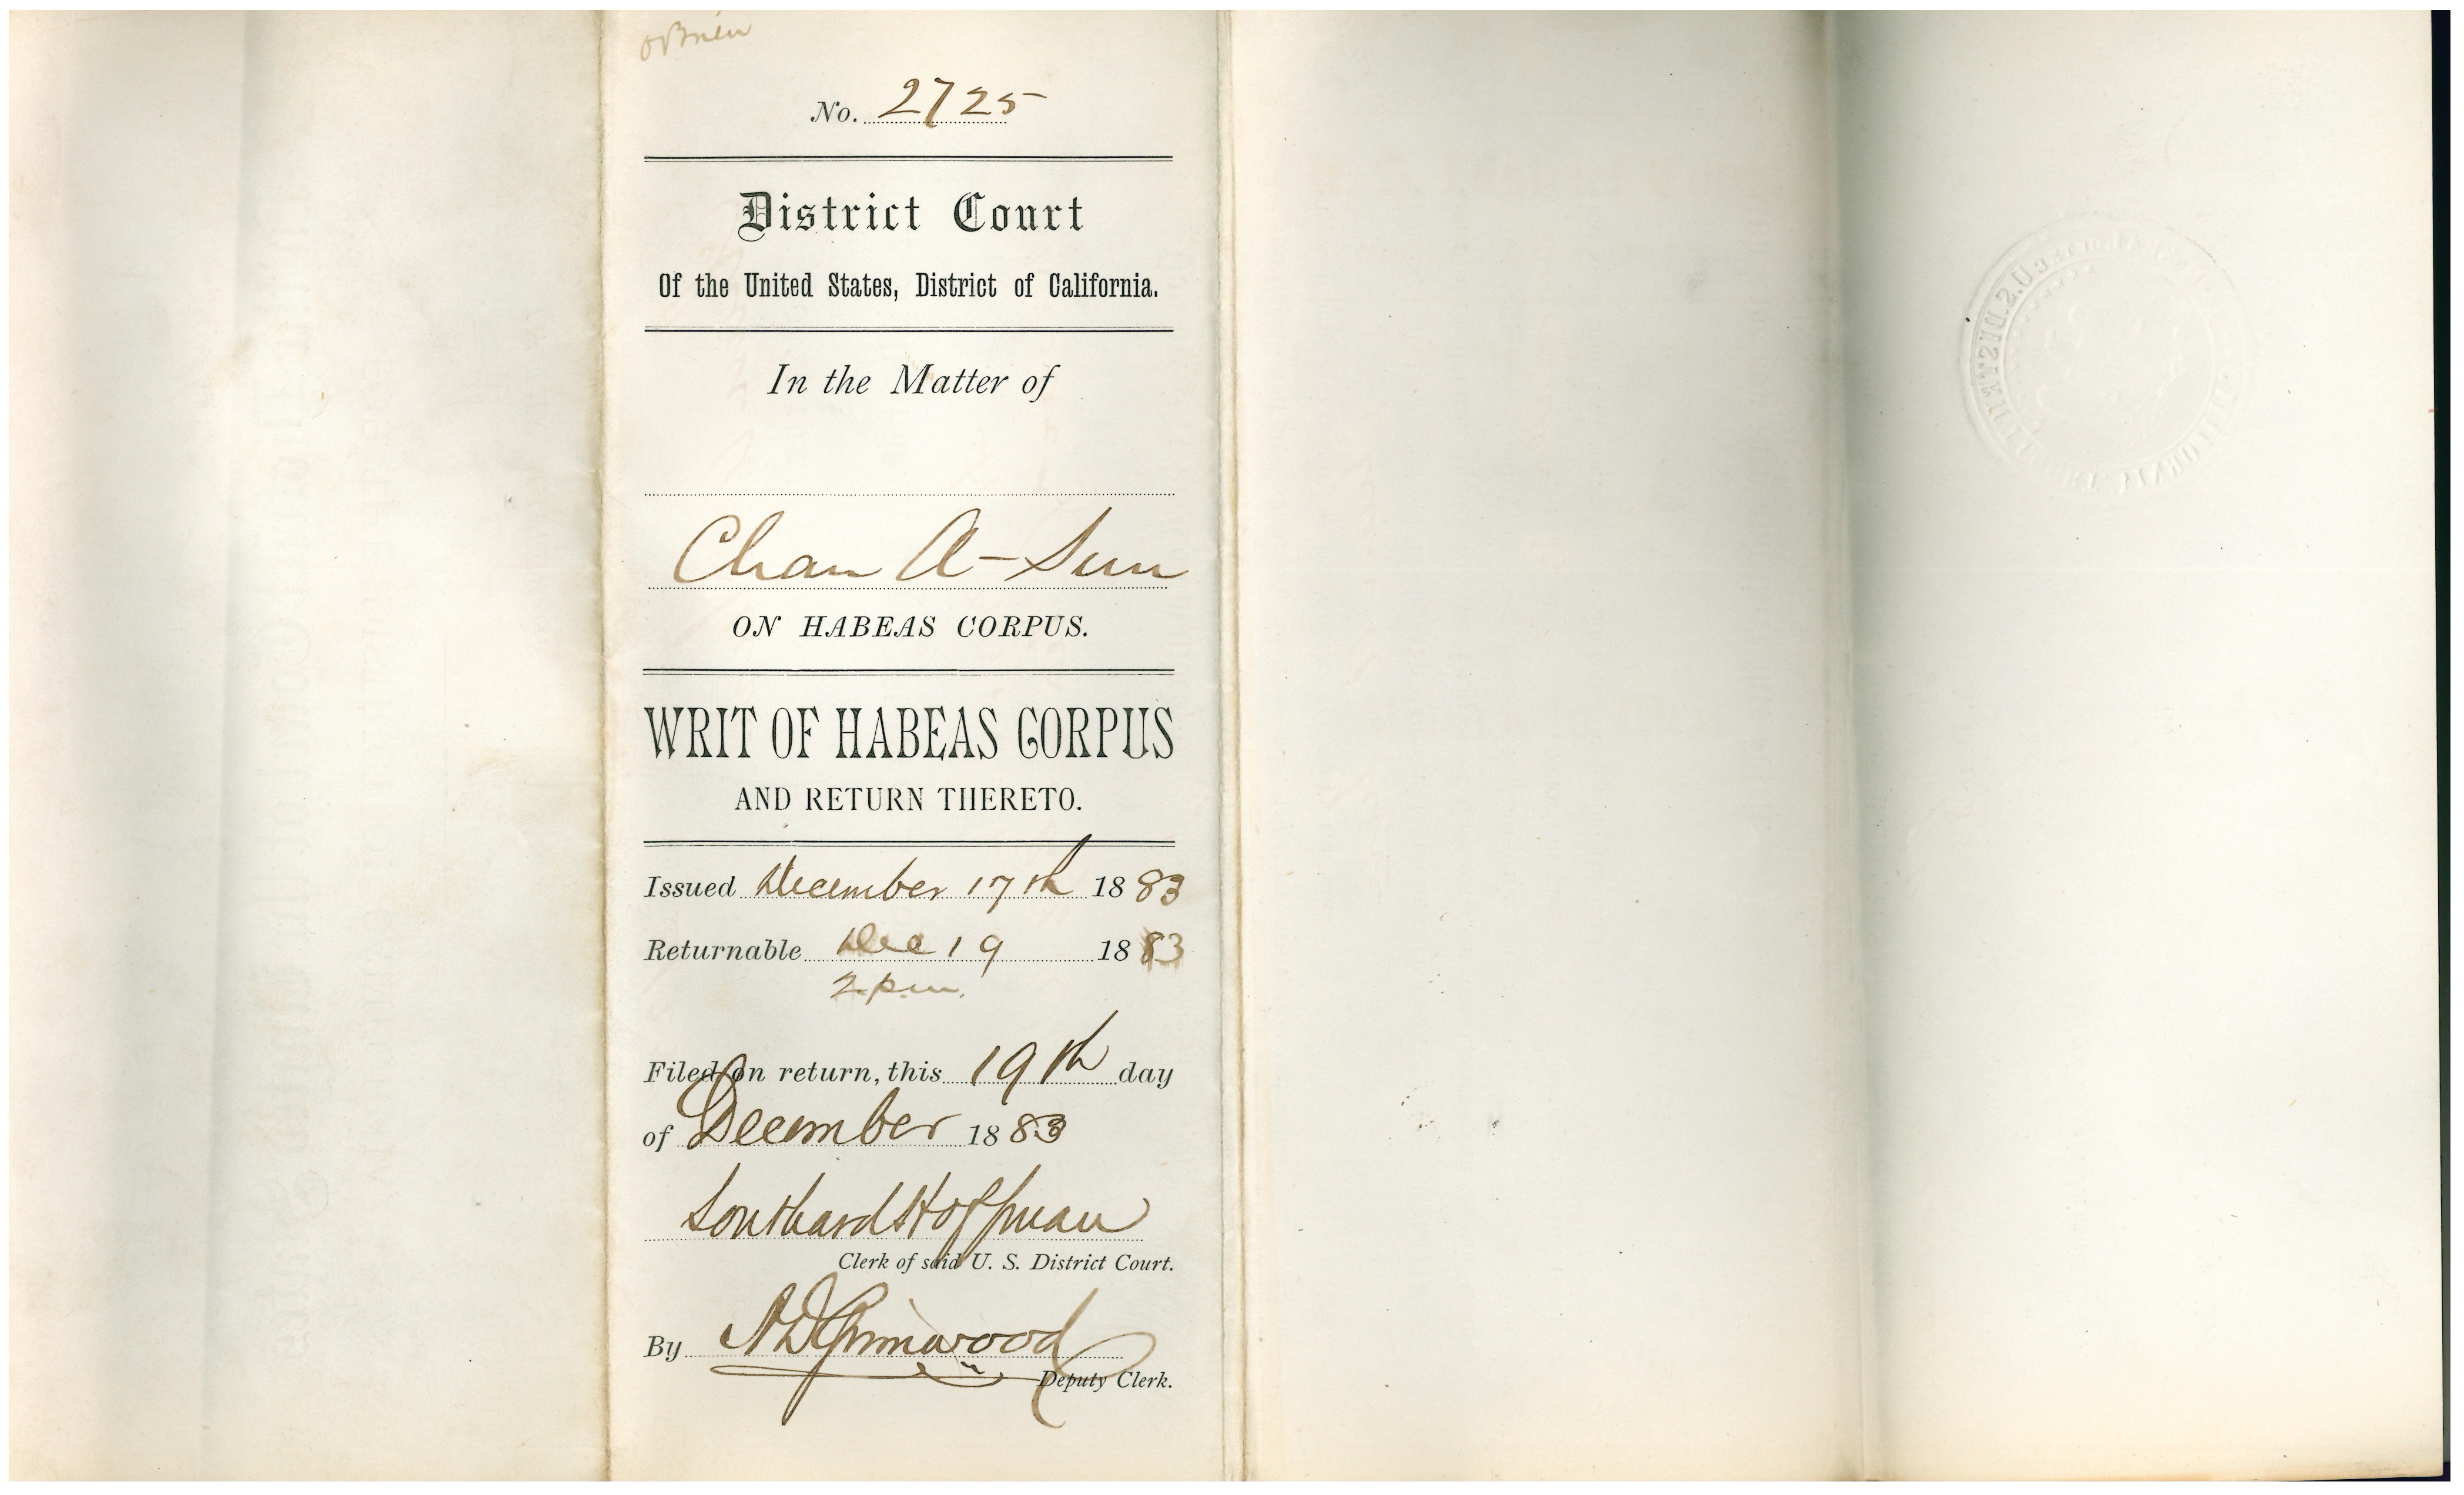 O'Brien
No. 2725
District Court
Of the United States, District of California.
In the Matter of
Chan A-Sun
ON HABEAS CORPUS.
WRIT OF HABEAS CORPUS
AND RETURN THERETO.
Issued December 17th 1883
Returnable Dec 19 1883
2 pm.
Filed on return, this 19th day
of December 1883
Southard Hoffman
Clerk of said U. S. District Court.
By Grimwood
Deputy Clerk.